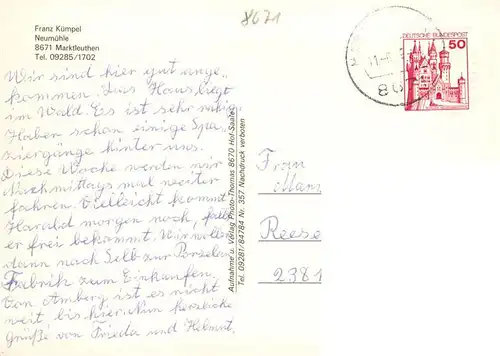 Franz Kümpel
Neumühle
8671 Marktleuthen
Tel. 09285/1702
8671
DEUTSCHE BUNDESPOST
50
Wir sind hier gut ange-
kommen. Das Haus liegt
im Wald. Es ist sehr ruhig.
Haben schon einige Spa-
ziergänge hinter uns.
Diese Woche werden wir
Nachmittags mal weiter
fahren. Vielleicht kommt
Harald morgen noch, falls
er frei bekommt. Wir wollen
dann nach Selb zur Porzelan
Fabrik zum Einkaufen.
Von Amberg ist es nicht
weit bis hier. Nun herzliche
Grüße von Frieda und Helmut.
Aufnahme u. Verlag Photo-Thomas 8670 Hof-Saale
Tel. 09281/84784 Nr. 357 Nachdruck verboten
Frau
Reese
2381